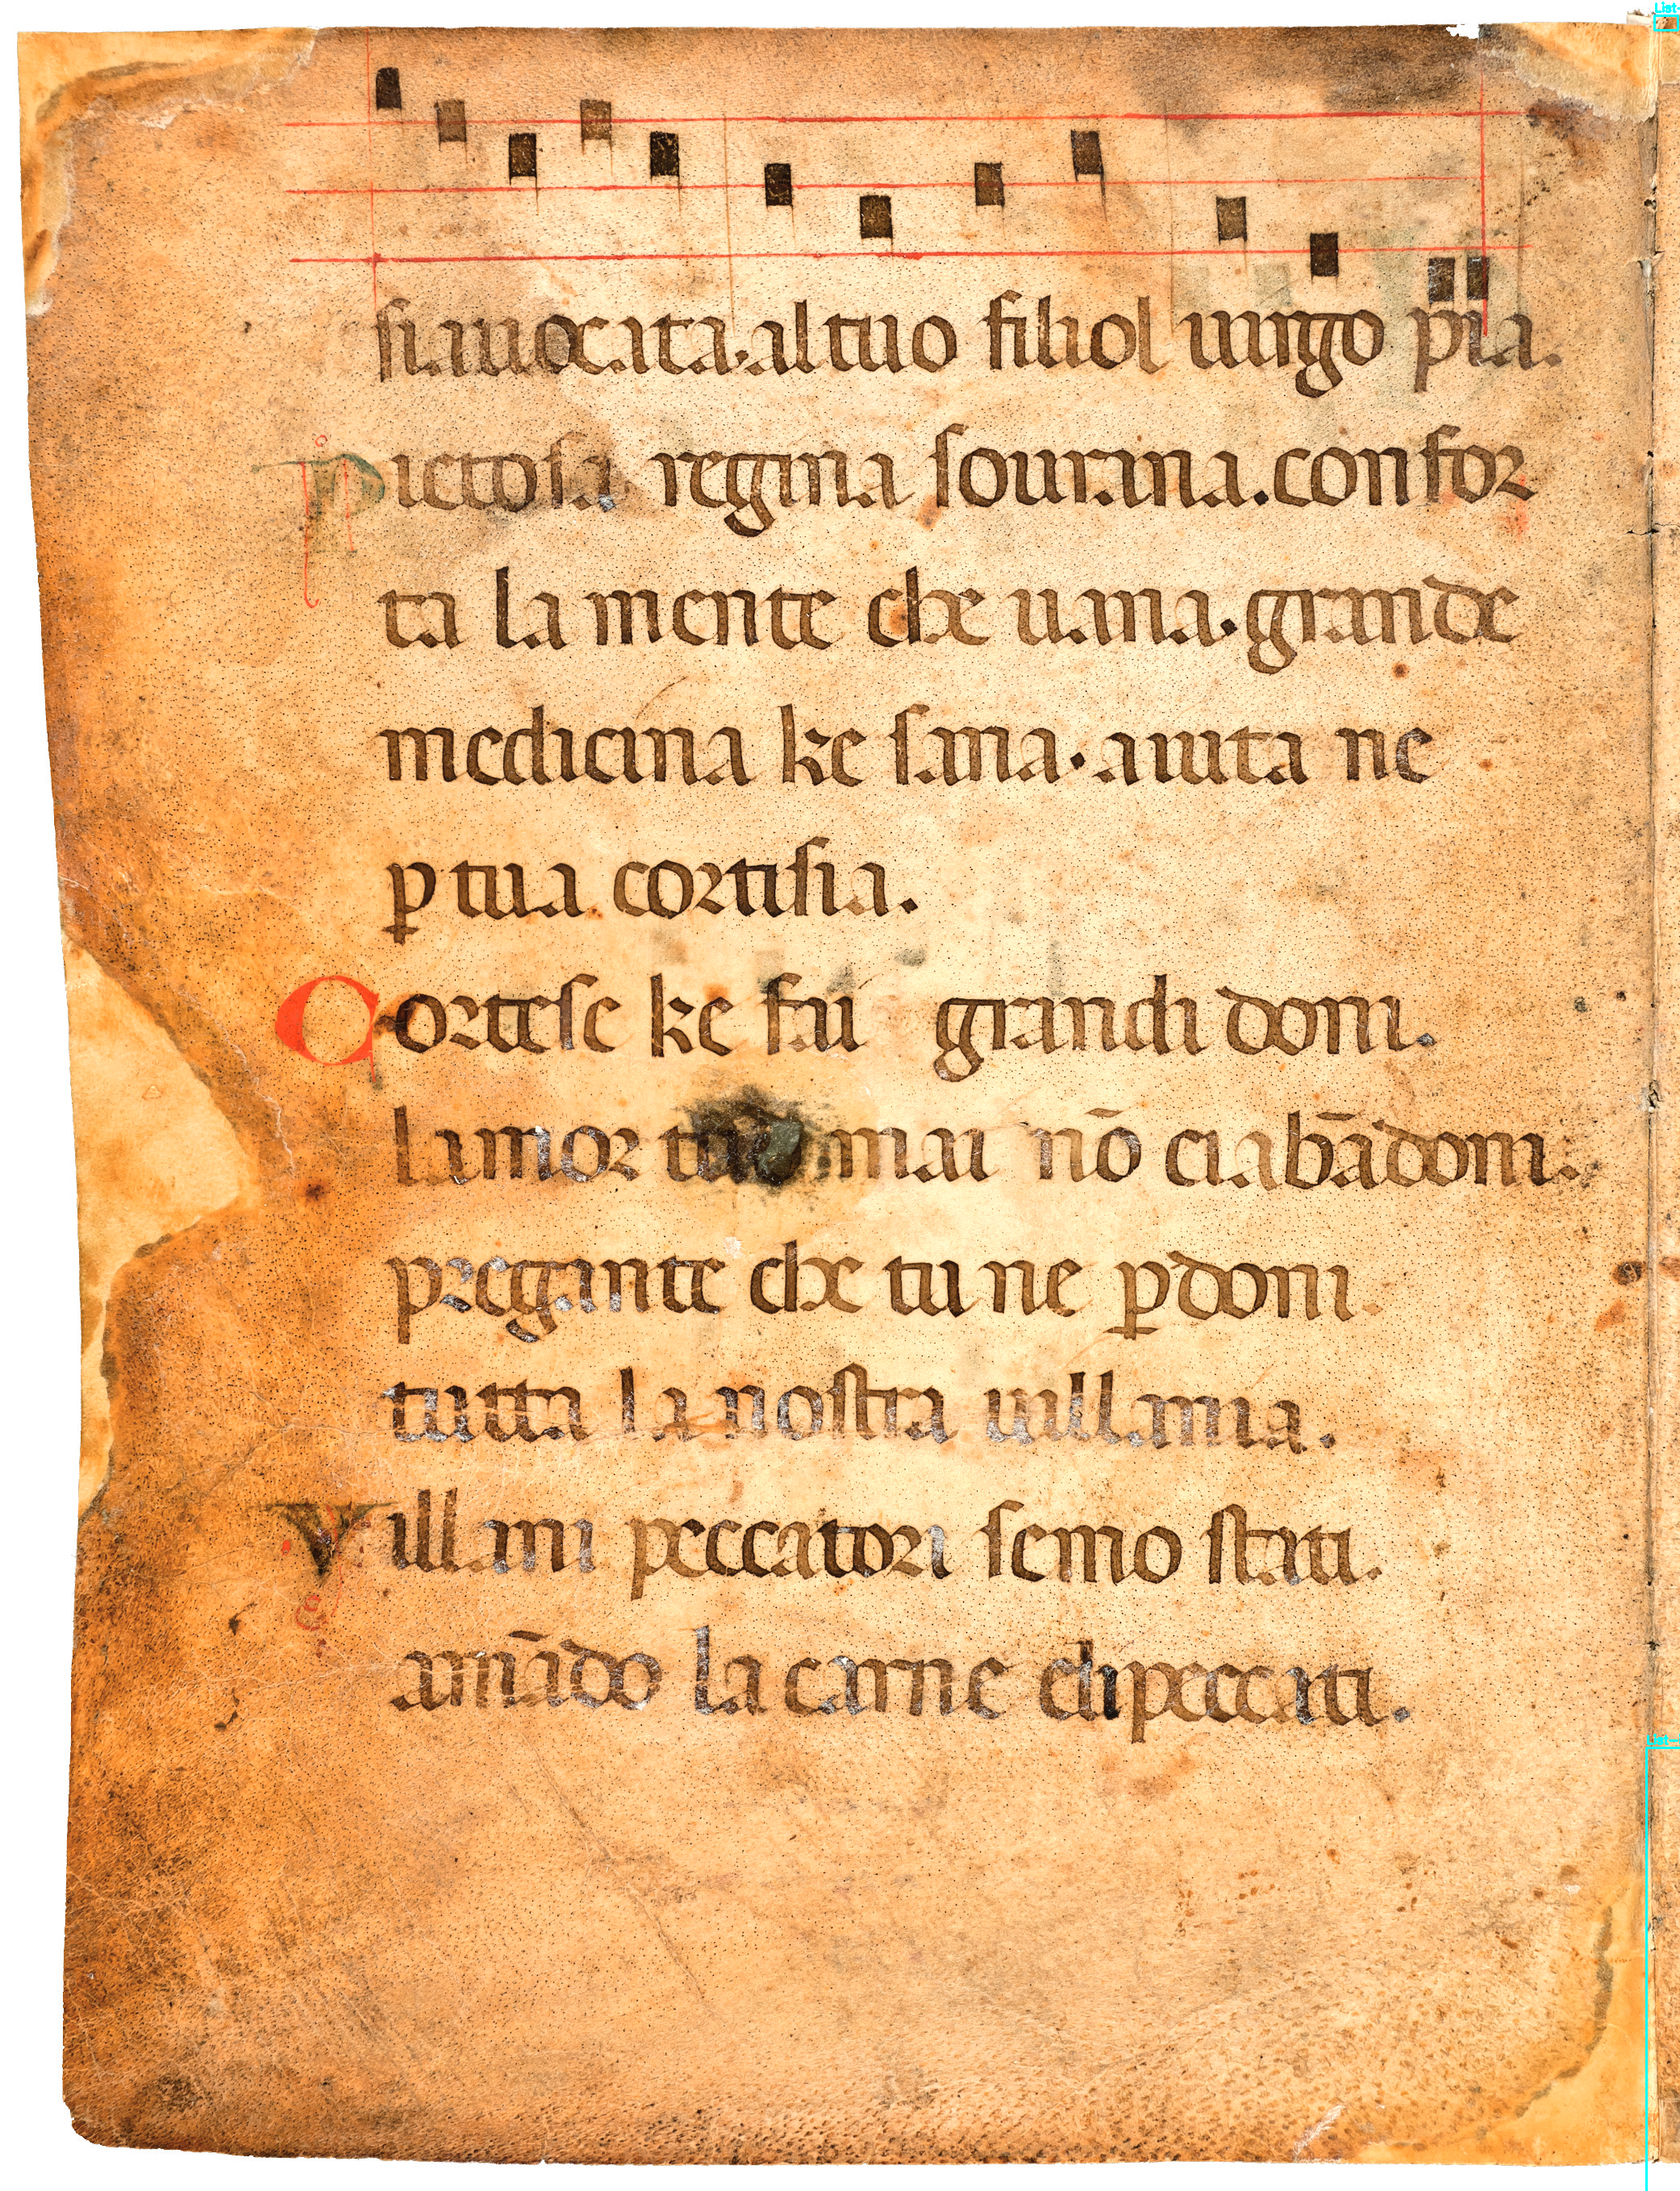 siauocata·al tuo filiol uirgo pia.
Pietosa regina sourana. confor
ta la mente che uana· grande
medicina ke sana· aiuta ne
ꝑ tua cortisia.
Cortese ke fai grandi doni.
lamor tuo mai nō ciabādoni.
pregante che tu ne ꝑdoni
tutta la nostra uillania.
Villani peccatori semo stati.
amādo la carne elipeccati.